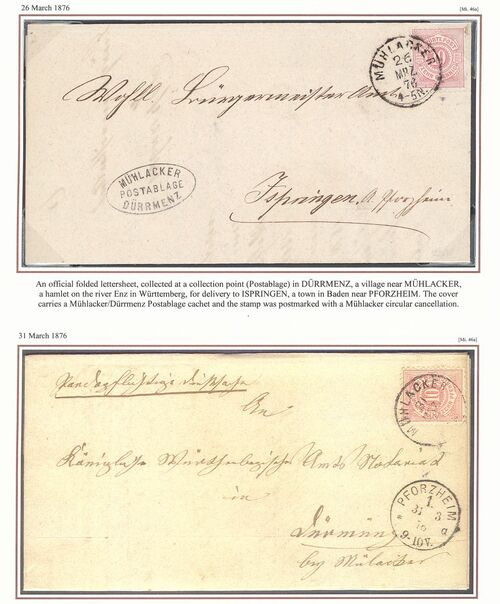 26 March 1876
[Mi. 46a]
MÜHLACKER
26
MRZ.
76
4-5N.
Wohll. Bürgermeister Amt
MÜHLACKER
POSTABLAGE
DÜRRMENZ
Ispringen, A. Pforzheim
An official folded lettersheet, collected at a collection point (Postablage) in DÜRRMENZ, a village near MÜHLACKER,
a hamlet on the river Enz in Württemberg, for delivery to ISPRINGEN, a town in Baden near PFORZHEIM. The cover
carries a Mühlacker/Dürrmenz Postablage cachet and the stamp was postmarked with a Mühlacker circular cancellation.
31 March 1876
[Mi. 46a]
MÜHLACKER
10
An
Königliche Württembergische Amts Notariat
in
PFORZHEIM
1.
31 3
76
9-10V.
a
Dürrmenz
bey Mülacker